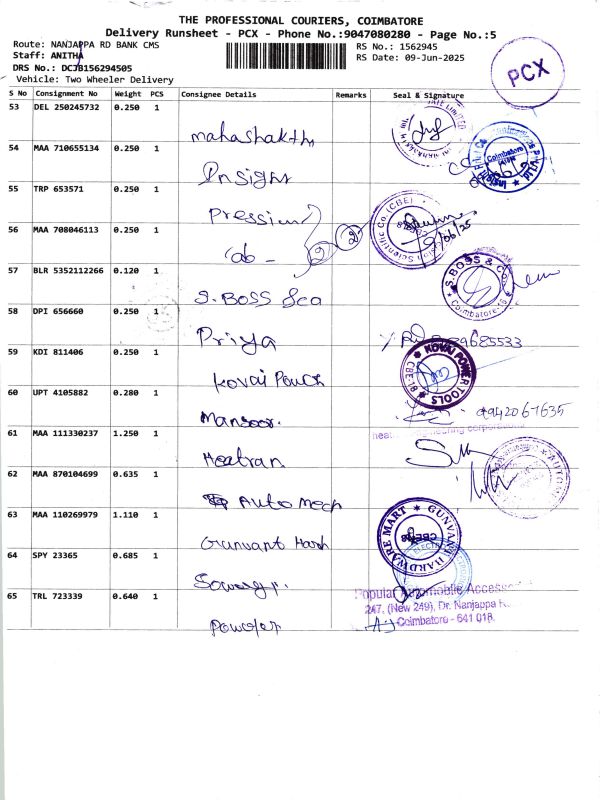 THE PROFESSIONAL COURIERS, COIMBATORE
Delivery Runsheet - PCX - Phone No.:9047080280 - Page No.:5
Route: NANJAPPA RD BANK CMS
RS No.: 1562945
Staff: ANITHA
RS Date: 09-Jun-2025
DRS No.: DCJB156294505
Vehicle: Two Wheeler Delivery
PCX
S No Consignment No Weight PCS Consignee Details Remarks Seal & Signature
53 DEL 250245732 0.250 1
mahashakthi
54 MAA 710655134 0.250 1
Insight
Coimbatore
55 TRP 653571 0.250 1
56 MAA 708046113 0.250 1
Scientific Co. (CBE)
9/06/25
2 2
57 BLR 5352112266 0.120 1
S. BOSS Sca
S.BOSS & Co.
Coimbatore-18
58 DPI 656660 0.250 1
Priya
59 KDI 811406 0.250 1
Kovai Pouch
KOVAI POWER TOOLS
60 UPT 4105882 0.280 1
Mansoor.
9942067635
61 MAA 111330237 1.250 1
Heatran
62 MAA 870104699 0.635 1
Auto mech
63 MAA 110269979 1.110 1
Gunvant Hard
GUNVANT HARDWARE MART
64 SPY 23365 0.685 1
65 TRL 723339 0.640 1
Popular Automobile
247, (New 249), Dr. Nanjappa
Coimbatore - 641 018.